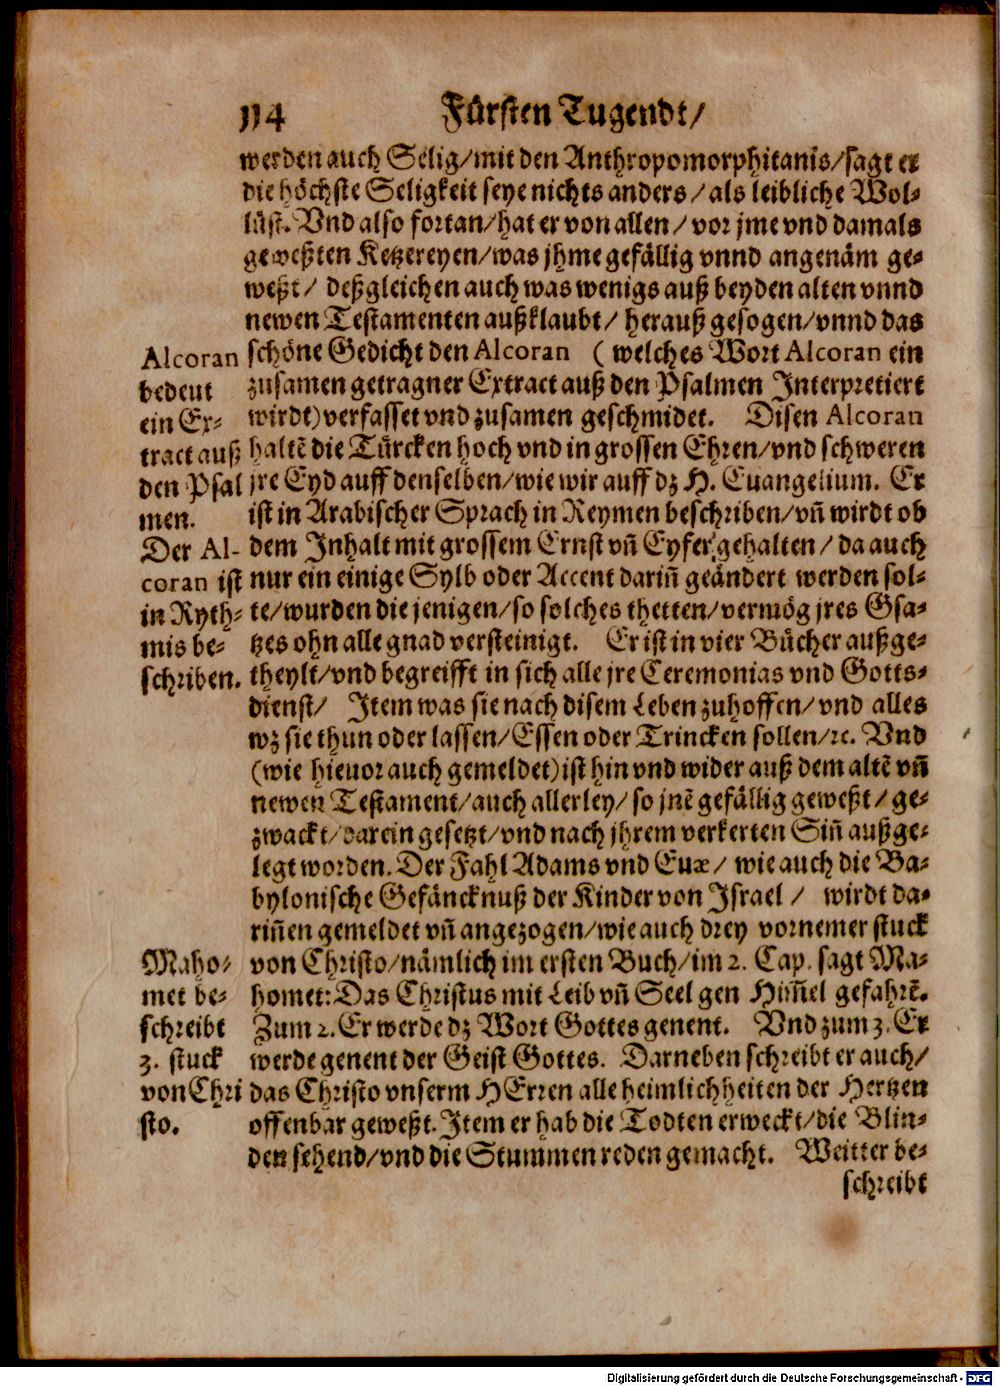 114 Fürsten Tugendt/
werden auch Selig/mit den Anthropomorphitanis/sagt er
die höchste Seligkeit seye nichts anders/als leibliche Wol-
lüst. Vnd also fortan/hat er von allen/vor jme vnd damals
geweßten Ketzereyen/was jhme gefällig vnnd angenäm ge-
weßt/ deßgleichen auch was wenigs auß beyden alten vnnd
newen Testamenten außklaubt/ herauß gesogen/vnnd das
schöne Gedicht den Alcoran (welches Wort Alcoran ein
zusamen getragner Extract auß den Psalmen Interpretiert
wirdt)verfasset vnd zusamen geschmidet. Disen Alcoran
haltē die Türcken hoch vnd in grossen Ehren/vnd schweren
jre Eyd auff denselben/wie wir auff dz H. Euangelium. Er
ist in Arabischer Sprach in Reymen beschriben/vñ wirdt ob
dem Inhalt mit grossem Ernst vñ Eyfer gehalten/da auch
nur ein einige Sylb oder Accent dariñ geändert werden sol-
te/wurden die jenigen/so solches thetten/vermög jres Gsa-
tzes ohn alle gnad versteinigt. Er ist in vier Bücher außge-
theylt/vnd begreifft in sich alle jre Ceremonias vnd Gotts-
dienst/ Item was sie nach disem Leben zuhoffen/vnd alles
wz sie thun oder lassen/Essen oder Trincken sollen/ꝛc. Vnd
(wie hieuor auch gemeldet)ist hin vnd wider auß dem altē vñ
newen Testament/auch allerley/so jnē gefällig geweßt/ge-
zwackt/darein gesetzt/vnd nach jhrem verkerten Siñ außge-
legt worden. Der Fahl Adams vnd Euæ/ wie auch die Ba-
bylonische Gefäncknuß der Kinder von Israel/ wirdt da-
riñen gemeldet vñ angezogen/wie auch drey vornemer stuck
von Christo/nämlich im ersten Buch/im 2. Cap. sagt Ma-
homet: Das Christus mit Leib vñ Seel gen Him̃el gefahrē.
Zum 2. Er werde dz Wort Gottes genent. Vnd zum 3. Er
werde genent der Geist Gottes. Darneben schreibt er auch/
das Christo vnserm HErren alle heimlichheiten der Hertzen
offenbar geweßt. Item er hab die Todten erweckt/die Blin-
den sehend/vnd die Stummen reden gemacht. Weitter be-
schreibt
Alcoran
bedeut
ein Ex-
tract auß
den Psal
men.
Der Al-
coran ist
in Ryth-
mis be-
schriben.
Maho-
met be-
schreibt
3. stuck
von Chri
sto.
Digitalisierung gefördert durch die Deutsche Forschungsgemeinschaft - DFG